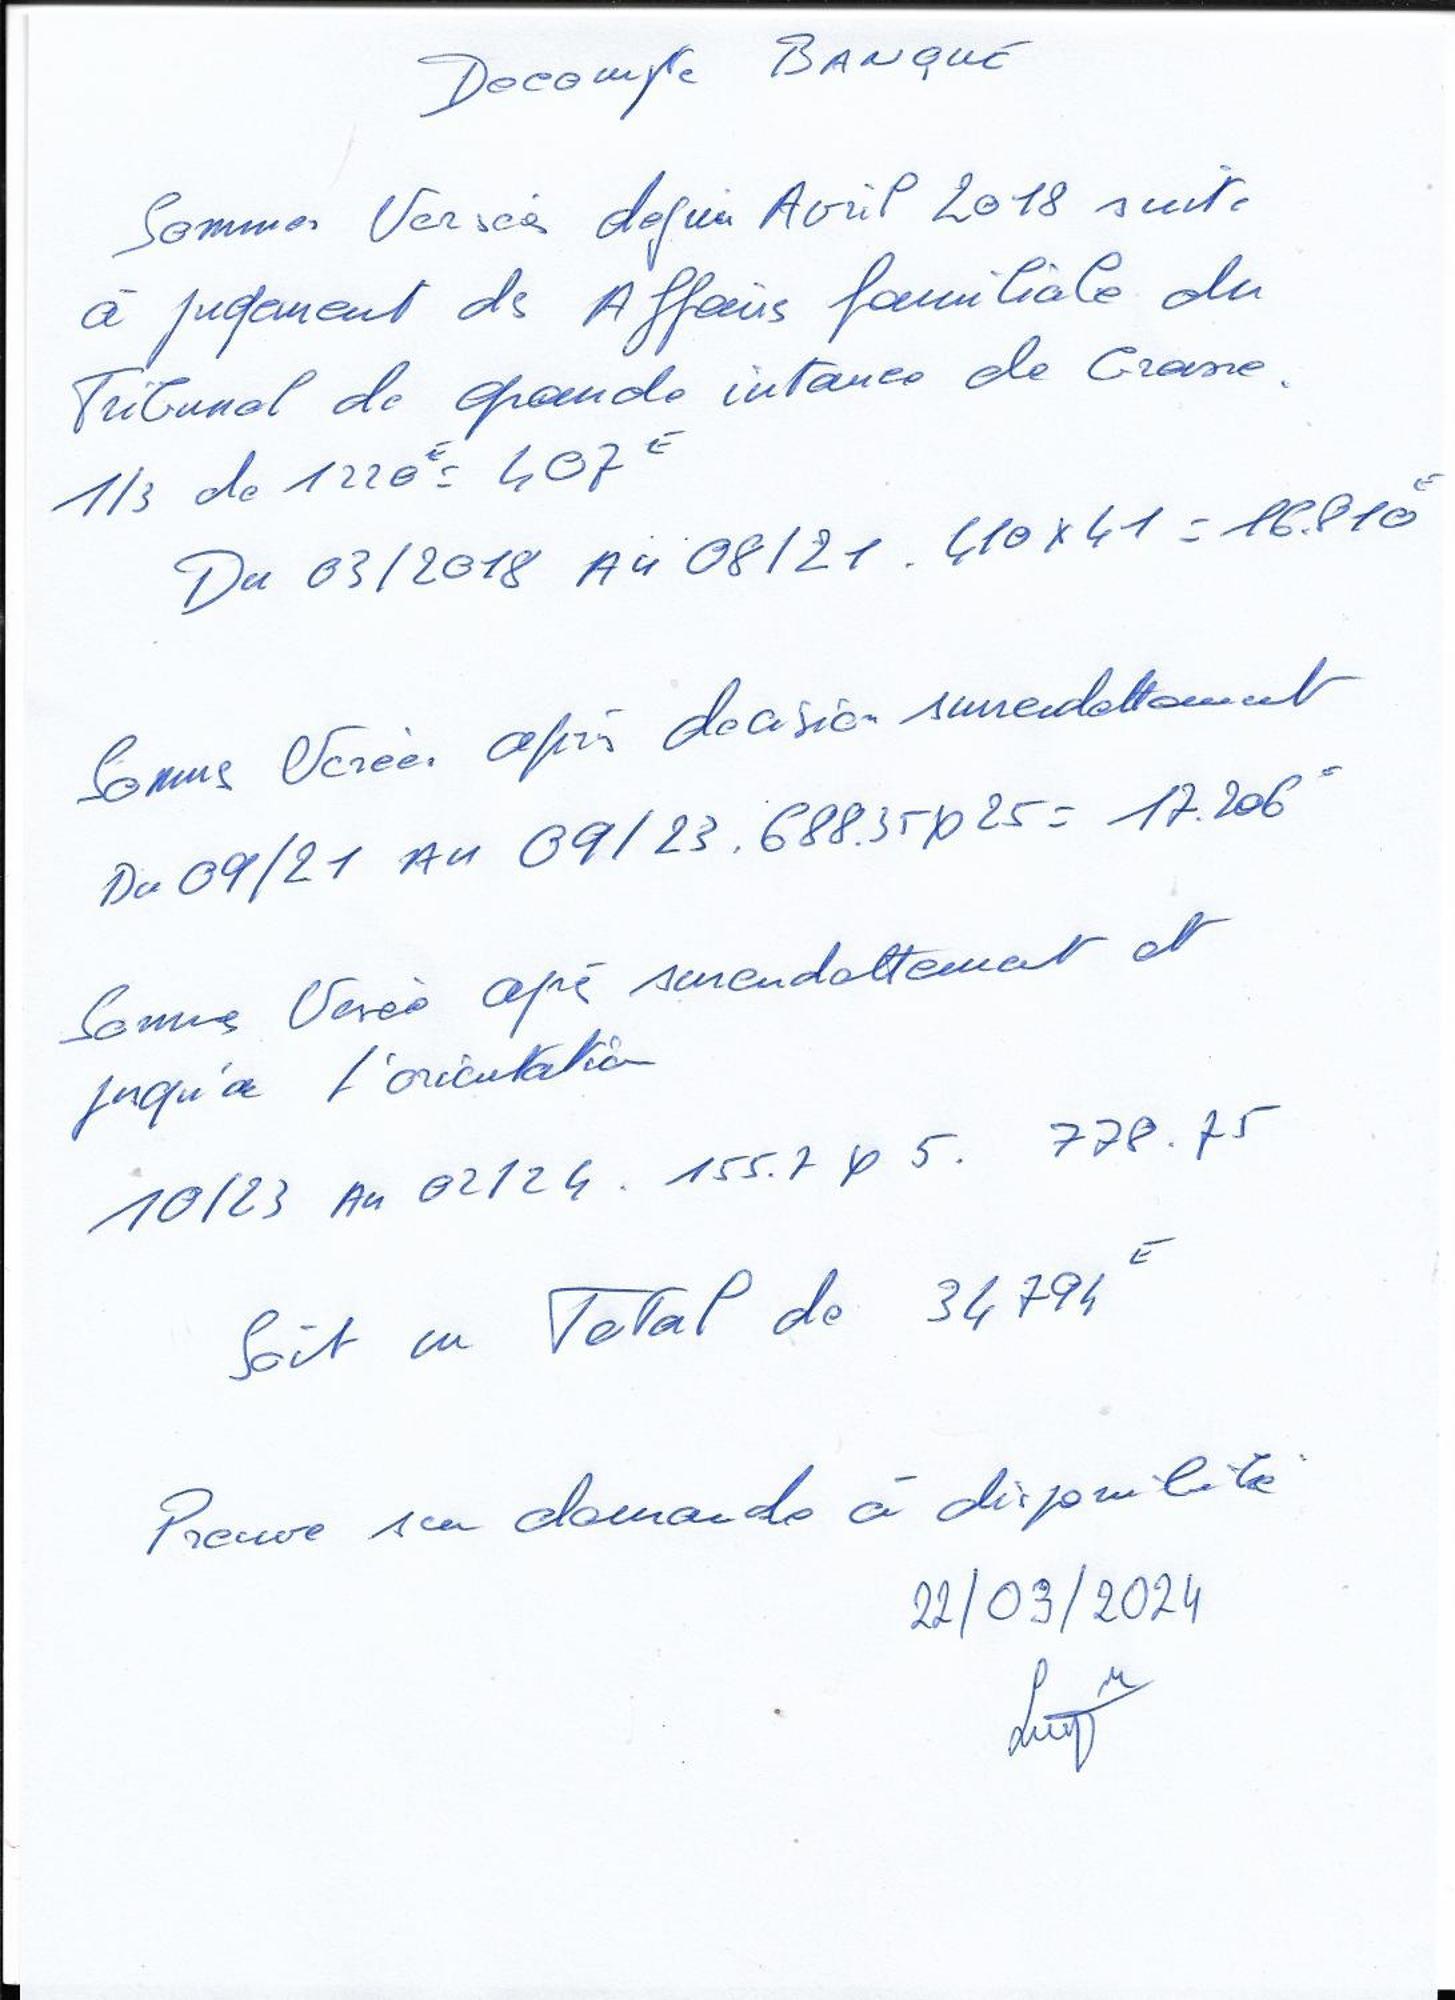 Decompte BANQUE
Sommes Versées depuis Avril 2018 suite
à jugement des Affaires familiale du
Tribunal de grande intance de Grasse.
1/3 de 1220€ = 407€
Du 03/2018 Au 08/21 . 410 x 41 = 16.810€
Sommes Versées après decision surrendettement
Du 09/21 Au 09/23 . 688.35 x 25 = 17.206€
Sommes Versée aprè surendettement et
jusqu'a l'orientation
10/23 Au 02/24 . 155.7 x 5. 778.75
Soit un Total de 34794€
Preuve sur demande à disponibilité
22/03/2024